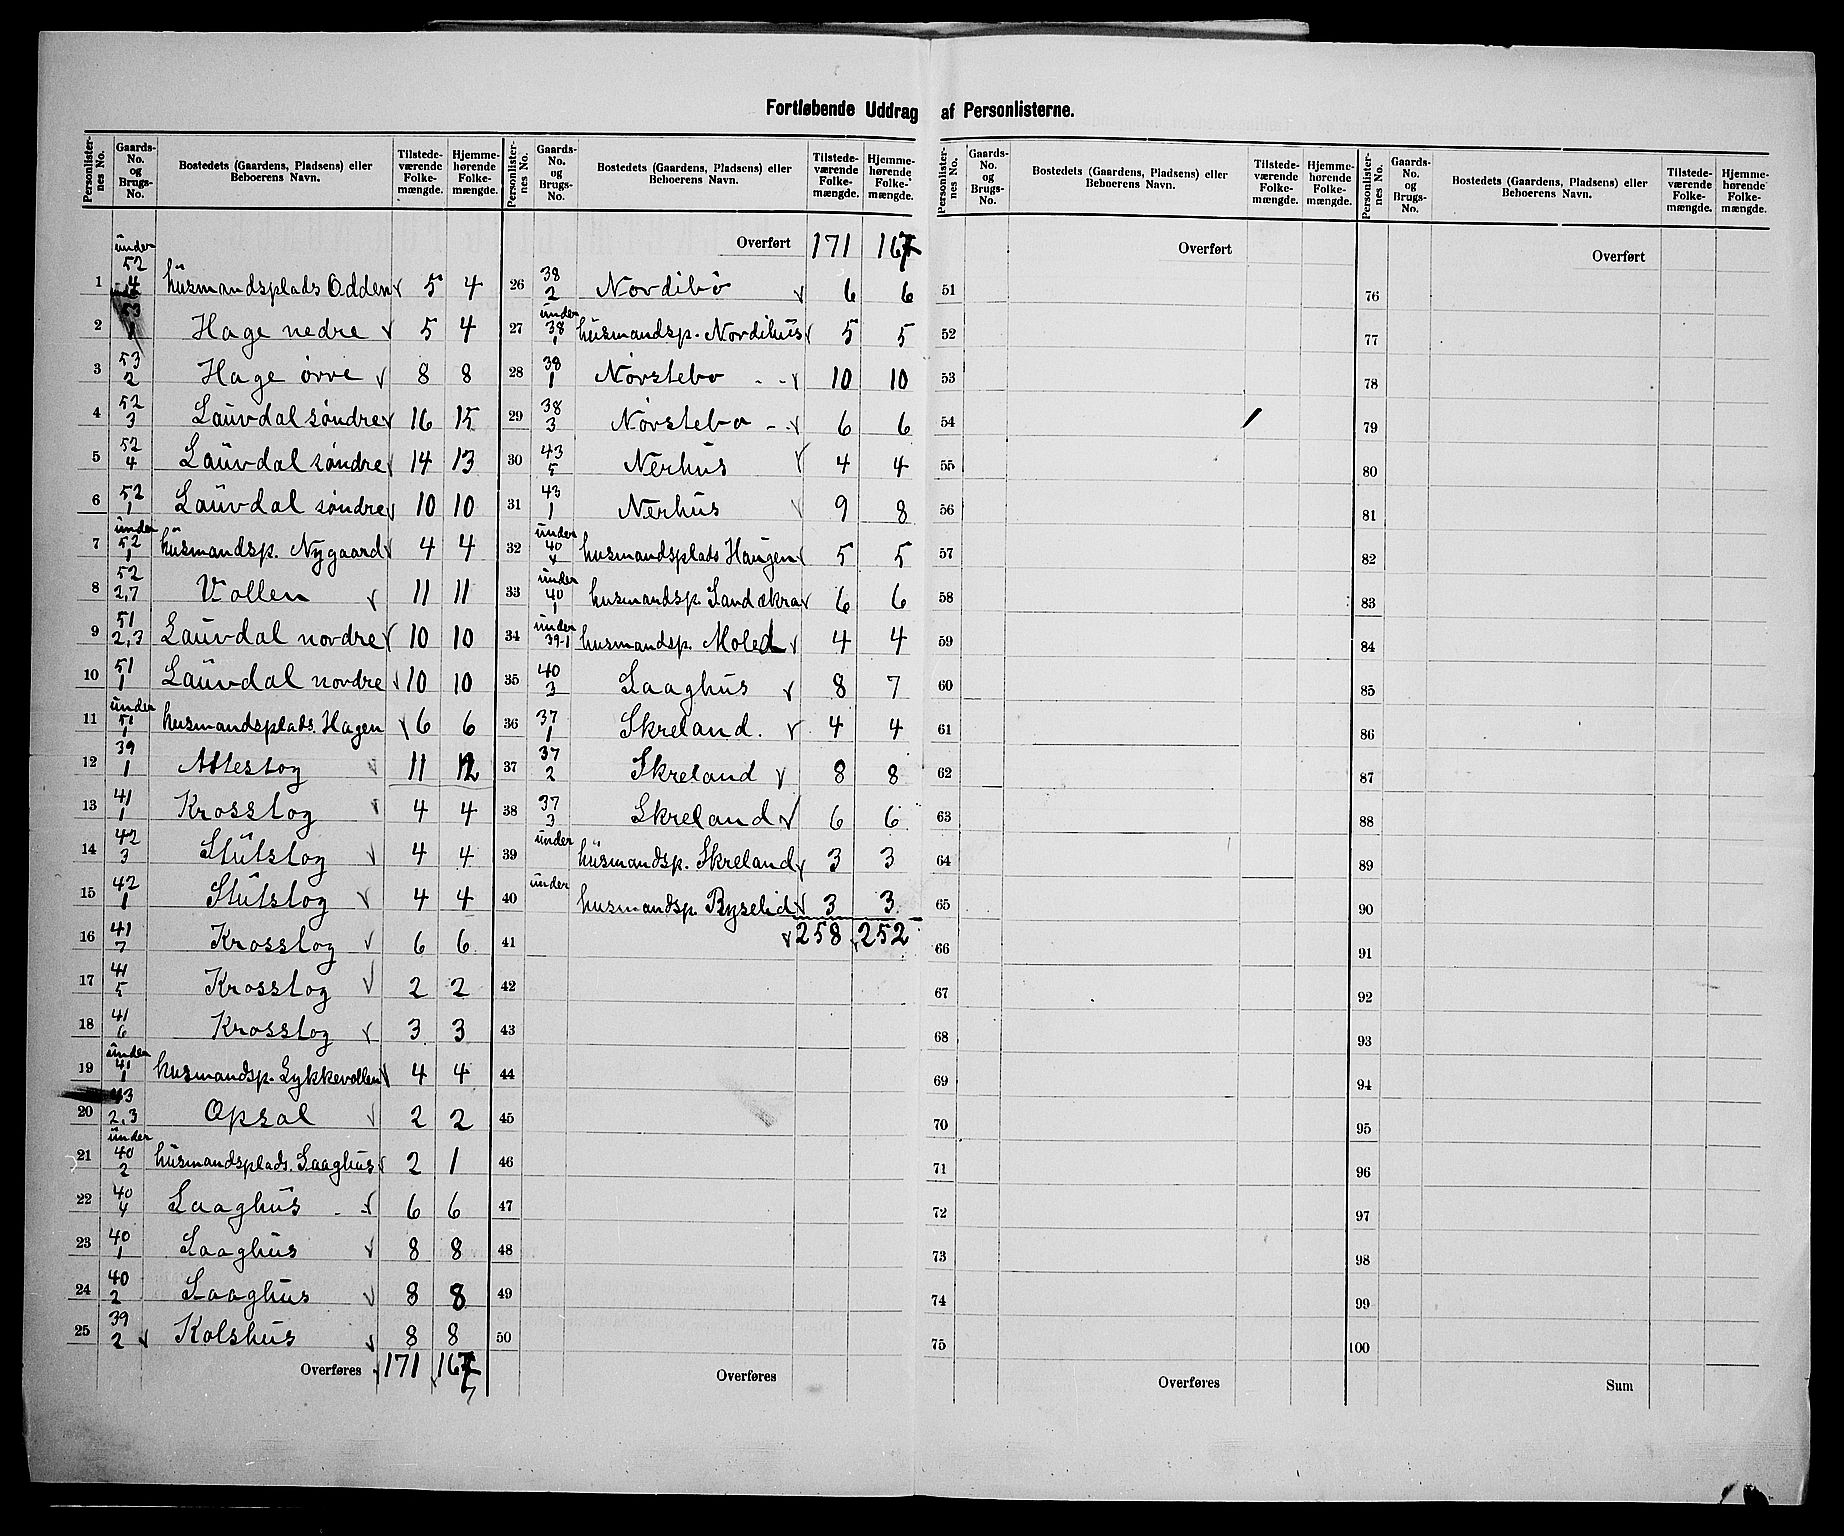 Fortløbende Uddrag af Personlisterne.
Personlister-nes No. | Gaards-No. og Brugs-No. | Bostedets (Gaardens, Pladsens) eller Beboerens Navn. | Tilstede-værende Folke-mængde. | Hjemme-hørende Folke-mængde.
1 | under 52 4 | husmandsplads Odden | 5 | 4
2 | 53 1 | Hage nedre | 5 | 4
3 | 53 2 | Hage øvre | 8 | 8
4 | 52 3 | Lauvdal søndre | 16 | 15
5 | 52 4 | Lauvdal søndre | 14 | 13
6 | 52 1 | Lauvdal søndre | 10 | 10
7 | under 52 1 | husmandsp. Nygaard | 4 | 4
8 | 52 2,7 | Vollen | 11 | 11
9 | 51 2,3 | Lauvdal nordre | 10 | 10
10 | 51 1 | Lauvdal nordre | 10 | 10
11 | under 51 1 | husmandsplads Hagen | 6 | 6
12 | 39 1 | Attestog | 11 | 12
13 | 41 1 | Krosstog | 4 | 4
14 | 42 3 | Stutstog | 4 | 4
15 | 42 1 | Stutstog | 4 | 4
16 | 41 7 | Krosstog | 6 | 6
17 | 41 5 | Krosstog | 2 | 2
18 | 41 6 | Krosstog | 3 | 3
19 | under 41 1 | husmandsp. Lykkevollen | 4 | 4
20 | 43 2,3 | Opsal | 2 | 2
21 | under 40 2 | husmandsplads. Laaghus | 2 | 1
22 | 40 4 | Laaghus | 6 | 6
23 | 40 1 | Laaghus | 8 | 8
24 | 40 2 | Laaghus | 8 | 8
25 | 39 2 | Kolshus | 8 | 8
Overføres 171 | 167
Personlister-nes No. | Gaards-No. og Brugs-No. | Bostedets (Gaardens, Pladsens) eller Beboerens Navn. | Tilstede-værende Folke-mængde. | Hjemme-hørende Folke-mængde.
Overført 171 | 167
26 | 38 2 | Nordibø | 6 | 6
27 | under 38 1 | husmandsp. Nordihus | 5 | 5
28 | 38 1 | Nørstebø | 10 | 10
29 | 38 3 | Nørstebø | 6 | 6
30 | 43 5 | Nerhus | 4 | 4
31 | 43 1 | Nerhus | 9 | 8
32 | under 40 4 | husmandsplads Haugen | 5 | 5
33 | under 40 1 | husmandsp. Sandækra | 6 | 6
34 | under 39-1 | husmandsp. Moled | 4 | 4
35 | 40 3 | Laaghus | 8 | 7
36 | 37 1 | Skreland. | 4 | 4
37 | 37 2 | Skreland | 8 | 8
38 | 37 3 | Skreland | 6 | 6
39 | under | husmandsp. Skreland | 3 | 3
40 | under | husmandsp. Byselid | 3 | 3
41 | 258 | 252
42
43
44
45
46
47
48
49
50
Overføres
Personlister-nes No. | Gaards-No. og Brugs-No. | Bostedets (Gaardens, Pladsens) eller Beboerens Navn. | Tilstede-værende Folke-mængde. | Hjemme-hørende Folke-mængde.
Overført
51
52
53
54
55
56
57
58
59
60
61
62
63
64
65
66
67
68
69
70
71
72
73
74
75
Overføres
Personlister-nes No. | Gaards-No. og Brugs-No. | Bostedets (Gaardens, Pladsens) eller Beboerens Navn. | Tilstede-værende Folke-mængde. | Hjemme-hørende Folke-mængde.
Overført
76
77
78
79
80
81
82
83
84
85
86
87
88
89
90
91
92
93
94
95
96
97
98
99
100
Sum